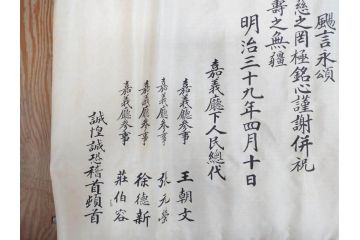 颺言永頌
慈之罔極銘心謹謝併祝
壽之無疆
明治三十九年四月十日
嘉義廳下人民總代
嘉義廳參事 王朝文
嘉義廳參事 張元榮
嘉義廳參事 徐德新
嘉義廳參事 莊伯容
誠惶誠恐稽首頓首